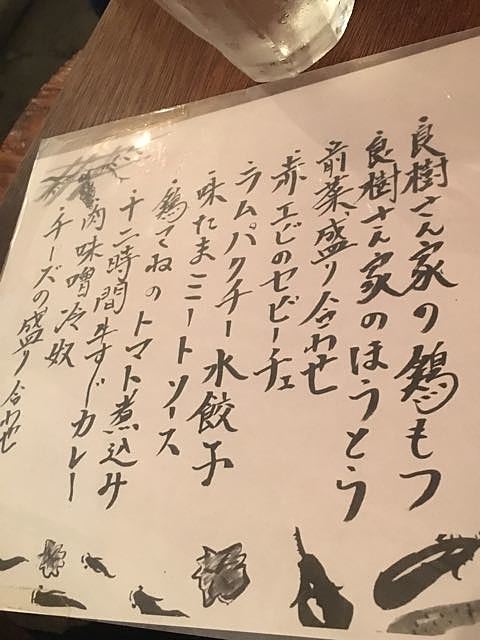 良樹さん家の鶏もつ
良樹さん家のほうとう
前菜盛り合わせ
赤エビのセビーチェ
ラムパクチー水餃子
味たまミートソース
鶏さねのトマト煮込み
十二時間牛すじカレー
肉味噌冷奴
チーズの盛り合わせ